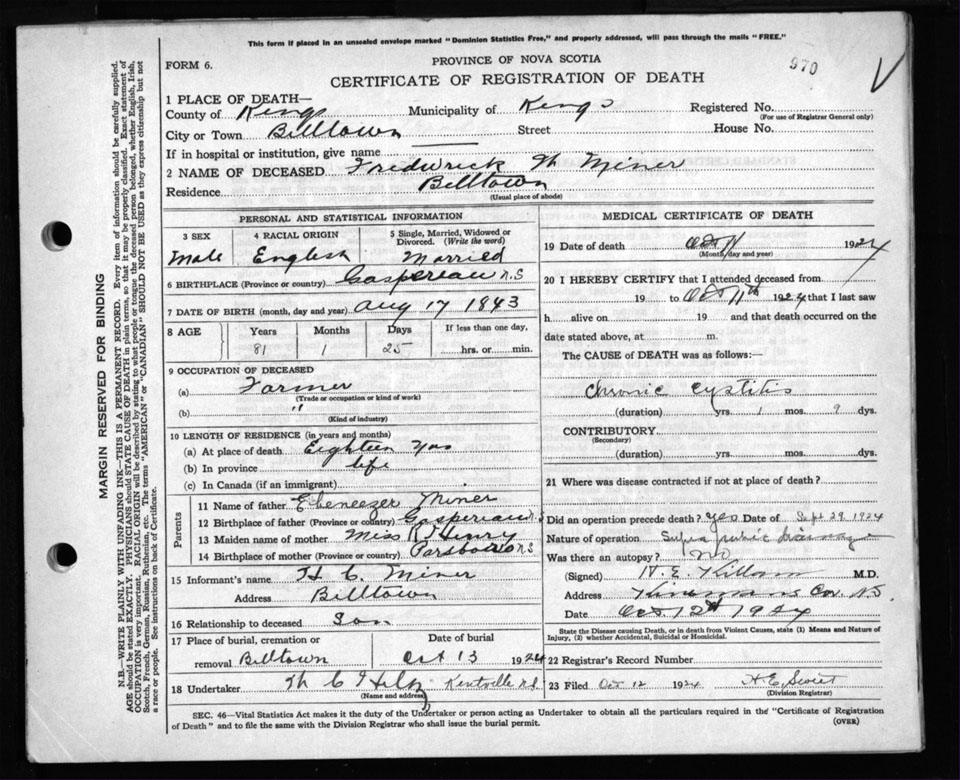 This form if placed in an unsealed envelope marked "Dominion Statistics Free," and properly addressed, will pass through the mails "FREE."
FORM 6.
PROVINCE OF NOVA SCOTIA
970
CERTIFICATE OF REGISTRATION OF DEATH
1 PLACE OF DEATH—
County of Kings Municipality of Kings Registered No.
(For use of Registrar General only)
City or Town Billtown Street House No.
If in hospital or institution, give name
2 NAME OF DECEASED Fredwrick Th Miner
Residence Billtown
(Usual place of abode)
PERSONAL AND STATISTICAL INFORMATION
3 SEX 4 RACIAL ORIGIN 5 Single, Married, Widowed or Divorced. (Write the word)
Male English Married
6 BIRTHPLACE (Province or country) Gasperiau N.S
7 DATE OF BIRTH (month, day and year) Aug 17 1843
8 AGE Years Months Days If less than one day,
81 1 25 hrs. or min.
9 OCCUPATION OF DECEASED
(a) Farmer
(Trade or occupation or kind of work)
(b) "
(Kind of industry)
10 LENGTH OF RESIDENCE (in years and months)
(a) At place of death Eighteen yrs
(b) In province life
(c) In Canada (if an immigrant)
Parents
11 Name of father Ebeneezer Miner
12 Birthplace of father (Province or country) Gasperiau N.S
13 Maiden name of mother Miss R J Henry
14 Birthplace of mother (Province or country) Parsboro N.S
15 Informant's name H C Miner
Address Billtown
16 Relationship to deceased Son
17 Place of burial, cremation or removal Billtown Date of burial Oct 13 1924
18 Undertaker Kentville N.S
(Name and address)
MEDICAL CERTIFICATE OF DEATH
19 Date of death Oct 11 1924
(Month, day and year)
20 I HEREBY CERTIFY that I attended deceased from
19 to Oct 11th 1924 that I last saw
h alive on 19 and that death occurred on the
date stated above, at m.
The CAUSE of DEATH was as follows:
Chronic Cystitis
(duration) yrs. 1 mos. 9 dys.
CONTRIBUTORY
(Secondary)
(duration) yrs. mos. dys.
21 Where was disease contracted if not at place of death?
Did an operation precede death? yes Date of Sept 29, 1924
Nature of operation Supra pubic drainage
Was there an autopsy? No
(Signed) N. E. Killam M.D.
Address Kinsmans Cor. N.S.
Date Oct 12th 1924
State the Disease causing Death, or in death from Violent Causes, state (1) Means and Nature of Injury, (2) whether Accidental, Suicidal or Homicidal.
22 Registrar's Record Number
23 Filed Oct 12 1924 H E Sweet
(Division Registrar)
SEC. 46—Vital Statistics Act makes it the duty of the Undertaker or person acting as Undertaker to obtain all the particulars required in the "Certificate of Registration
of Death" and to file the same with the Division Registrar who shall issue the burial permit.
(OVER)
MARGIN RESERVED FOR BINDING
N.B.—WRITE PLAINLY WITH UNFADING INK—THIS IS A PERMANENT RECORD. Every item of information should be carefully supplied.
AGE should be stated EXACTLY. PHYSICIANS should STATE CAUSE OF DEATH in plain terms, so that it may be properly classified. Exact statement of
OCCUPATION is very important. RACIAL ORIGIN will be described by stating to what people or tongue the deceased person belonged, whether English, Irish,
Scotch, French, German, Russian, Ruthenian, etc. The terms "AMERICAN" or "CANADIAN" SHOULD NOT BE USED as they express citizenship but not
a race or people. See instructions on back of Certificate.